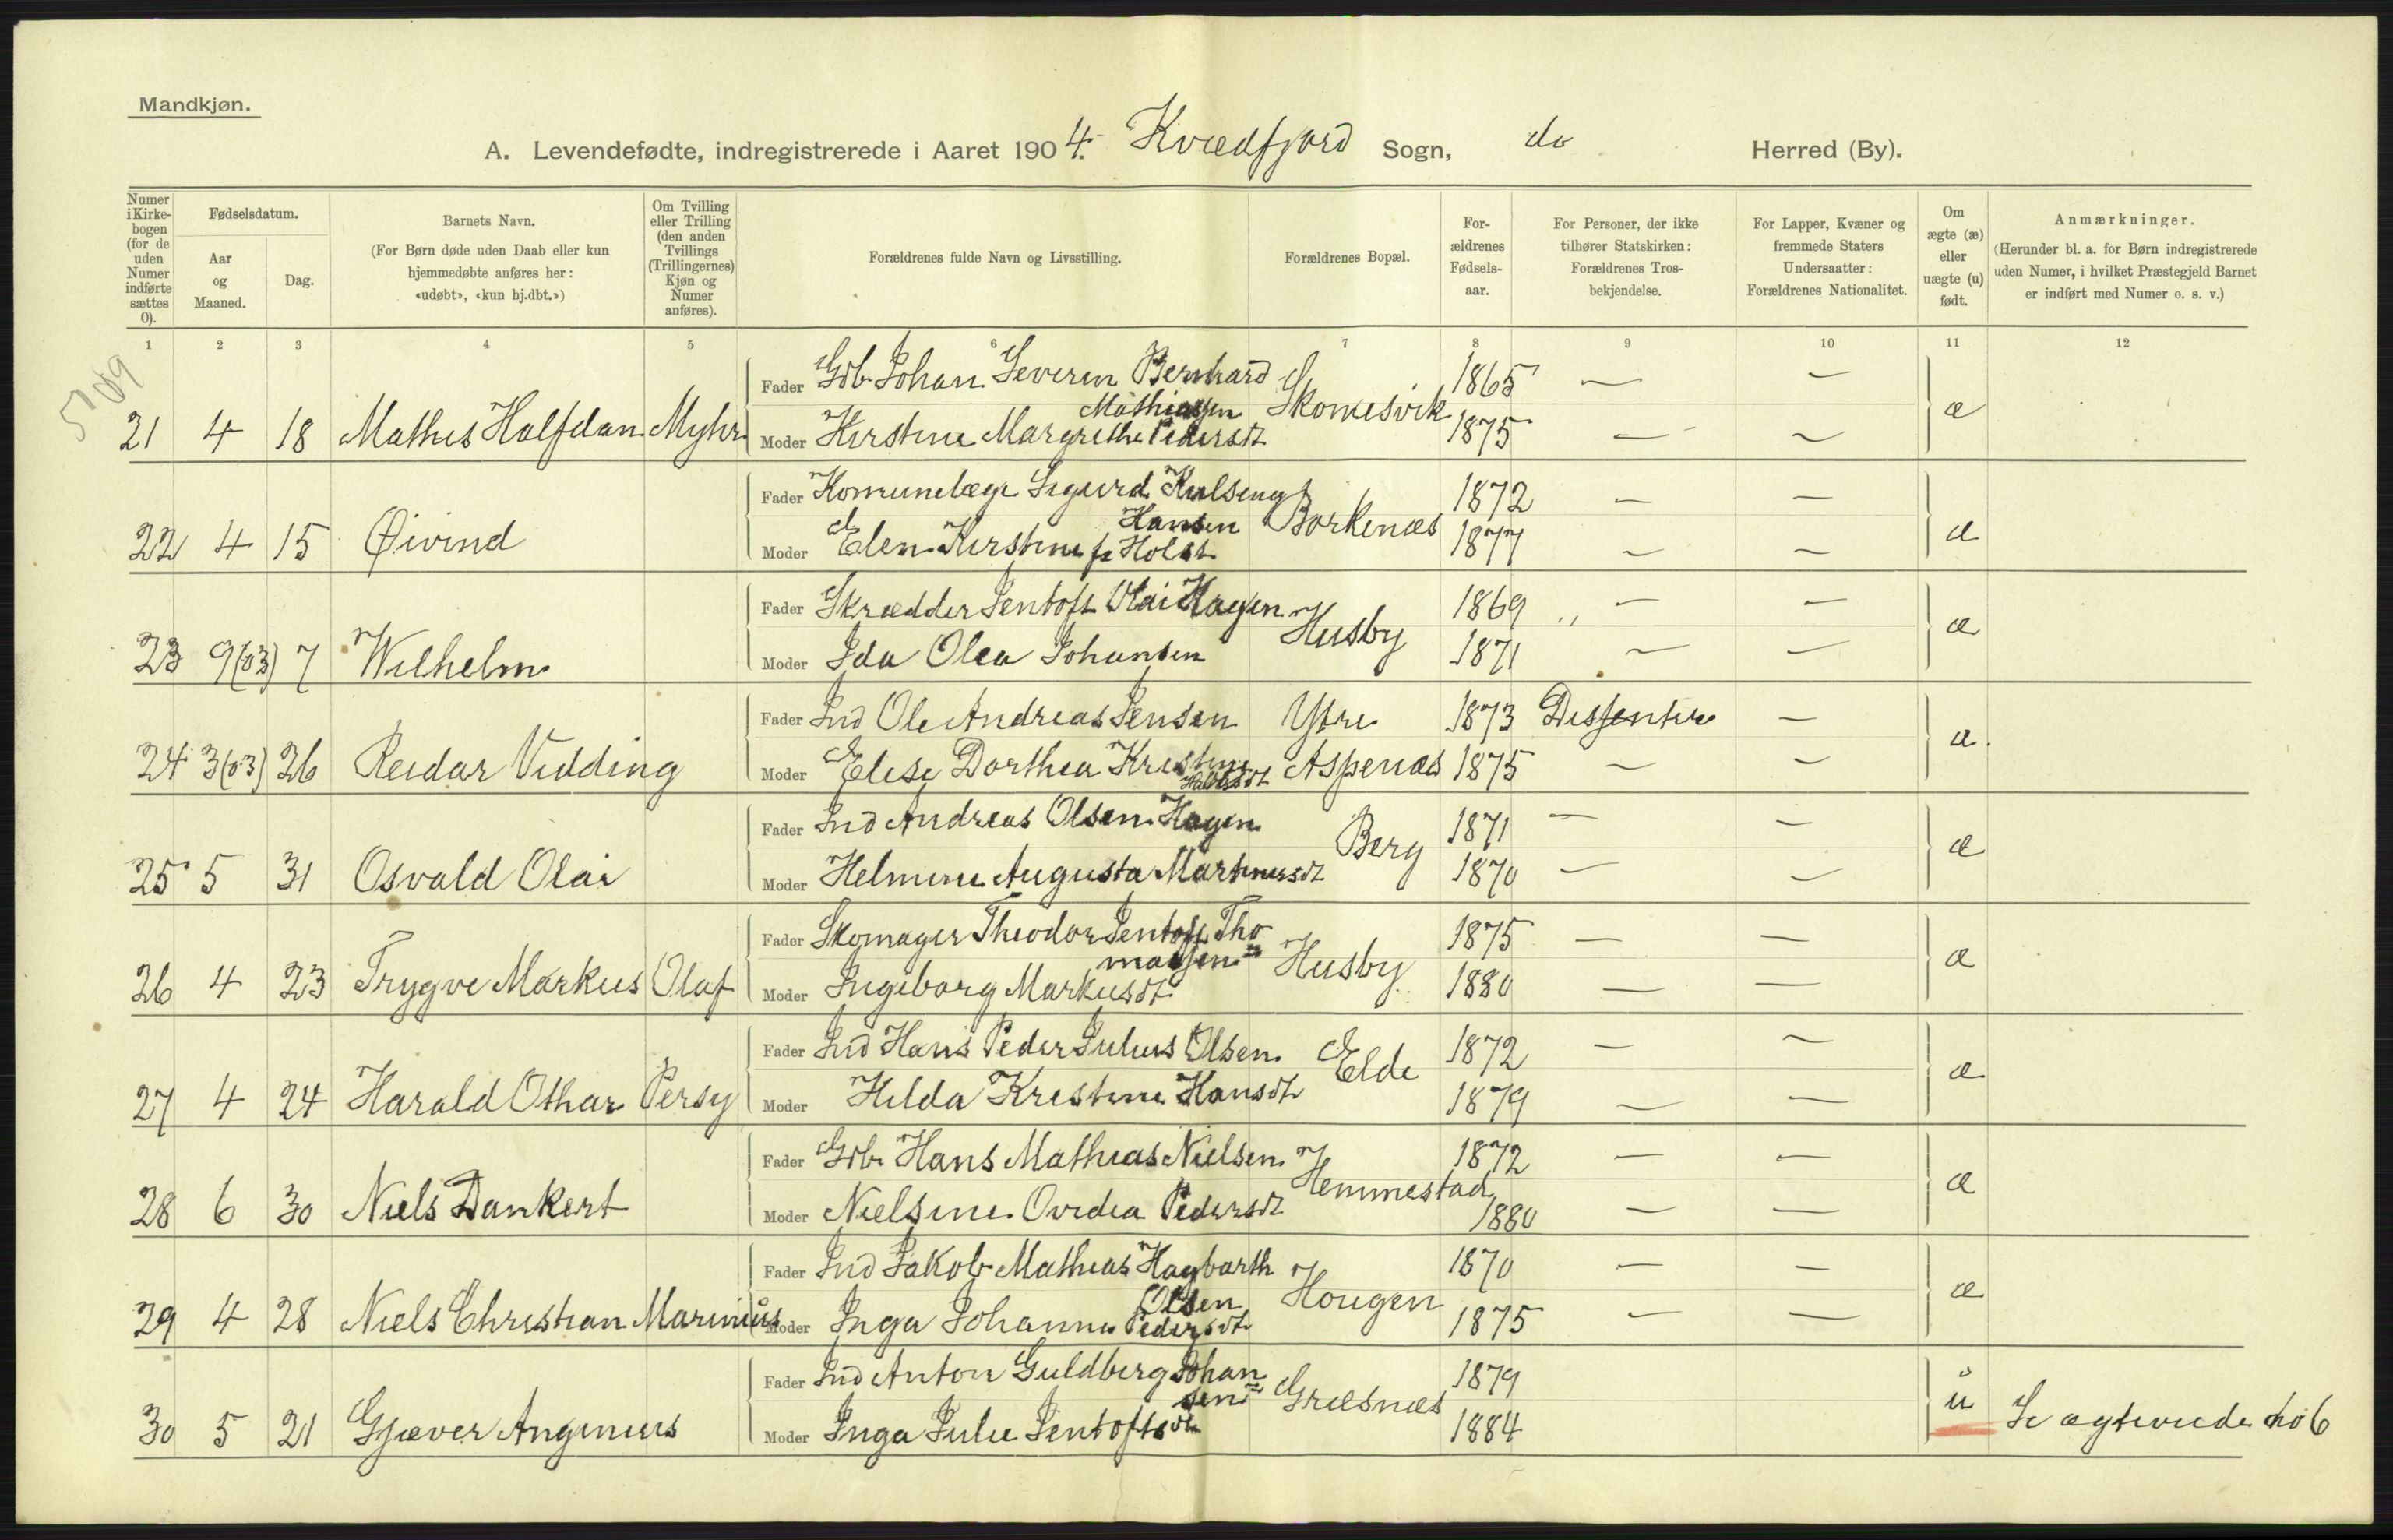 Mandkjøn.
A. Levendefødte, indregistrerede i Aaret 1904. Kvædfjord Sogn, do Herred (By).
Numer i Kirkebogen (for de uden Numer indførte sættes 0).
Fødselsdatum.
Aar og Maaned.
Dag.
Barnets Navn.
(For Børn døde uden Daab eller kun hjemmedøbte anføres her: «udøbt», «kun hj.dbt.»)
Om Tvilling eller Trilling (den anden Tvillings (Trillingernes) Kjøn og Numer anføres).
Forældrenes fulde Navn og Livsstilling.
Forældrenes Bopæl.
Forældrenes Fødselsaar.
For Personer, der ikke tilhører Statskirken: Forældrenes Trosbekjendelse.
For Lapper, Kvæner og fremmede Staters Undersaatter: Forældrenes Nationalitet.
Om ægte (æ) eller uægte (u) født.
Anmærkninger.
(Herunder bl. a. for Børn indregistrerede uden Numer, i hvilket Præstegjeld Barnet er indført med Numer o. s. v.)
1 2 3 4 5 6 7 8 9 10 11 12
Fader Gdb Johan Severin Bernhard Mathiassen Skomesvik 1865 — —
21 4 18 Mathis Halfdan Myhr Moder Kirstine Margrethe Pedersdt 1875 — — æ
Fader Komunelæge Sigurd Kulseng Hansen Borkenæs 1872 — —
22 4 15 Øivind Moder Elen Kirstine f. Holst 1877 — — æ
Fader Skrædder Jentoft Olai Hagen Husby 1869 — —
23 9(03) 7 Wilhelm Moder Ida Olea Johansen 1871 — — æ
Fader Ind Ole Andreas Jensen Ytre 1873 Dissentere —
24 3(03) 26 Reidar Vidding Moder Elise Dorthea Kristine Aspenæs 1875 — — æ
Fader Ind Andreas Olsen Hagen Berg 1871 — —
25 5 31 Osvald Olai Moder Helmine Augusta Martinusdt 1870 — — æ
Fader Skomager Theodor Jentoft Thomassen Husby 1875 — —
26 4 23 Trygve Markus Olaf Moder Ingeborg Markusdt 1880 — — æ
Fader Ind Hans Peder Julius Olsen Elde 1872 — —
27 4 24 Harald Othar Persy Moder Hilda Kristine Hansdt 1879 — — æ
Fader Gdb Hans Mathias Nielsen Hemmestad 1872 — —
28 6 30 Niels Dankert Moder Nielsine Ovedia Pedersdt 1880 — — æ
Fader Ind Jakob Mathias Hagbarth Olsen Hougen 1870 — —
29 4 28 Niels Christian Marinius Moder Inga Johanna Pedersdt 1875 — — æ
Fader Ind Anton Guldberg Johansen Græsnæs 1879
30 5 21 Gjæver Anginius Moder Inga Julie Jentoftsdt 1884 u Se ægteviede no 6